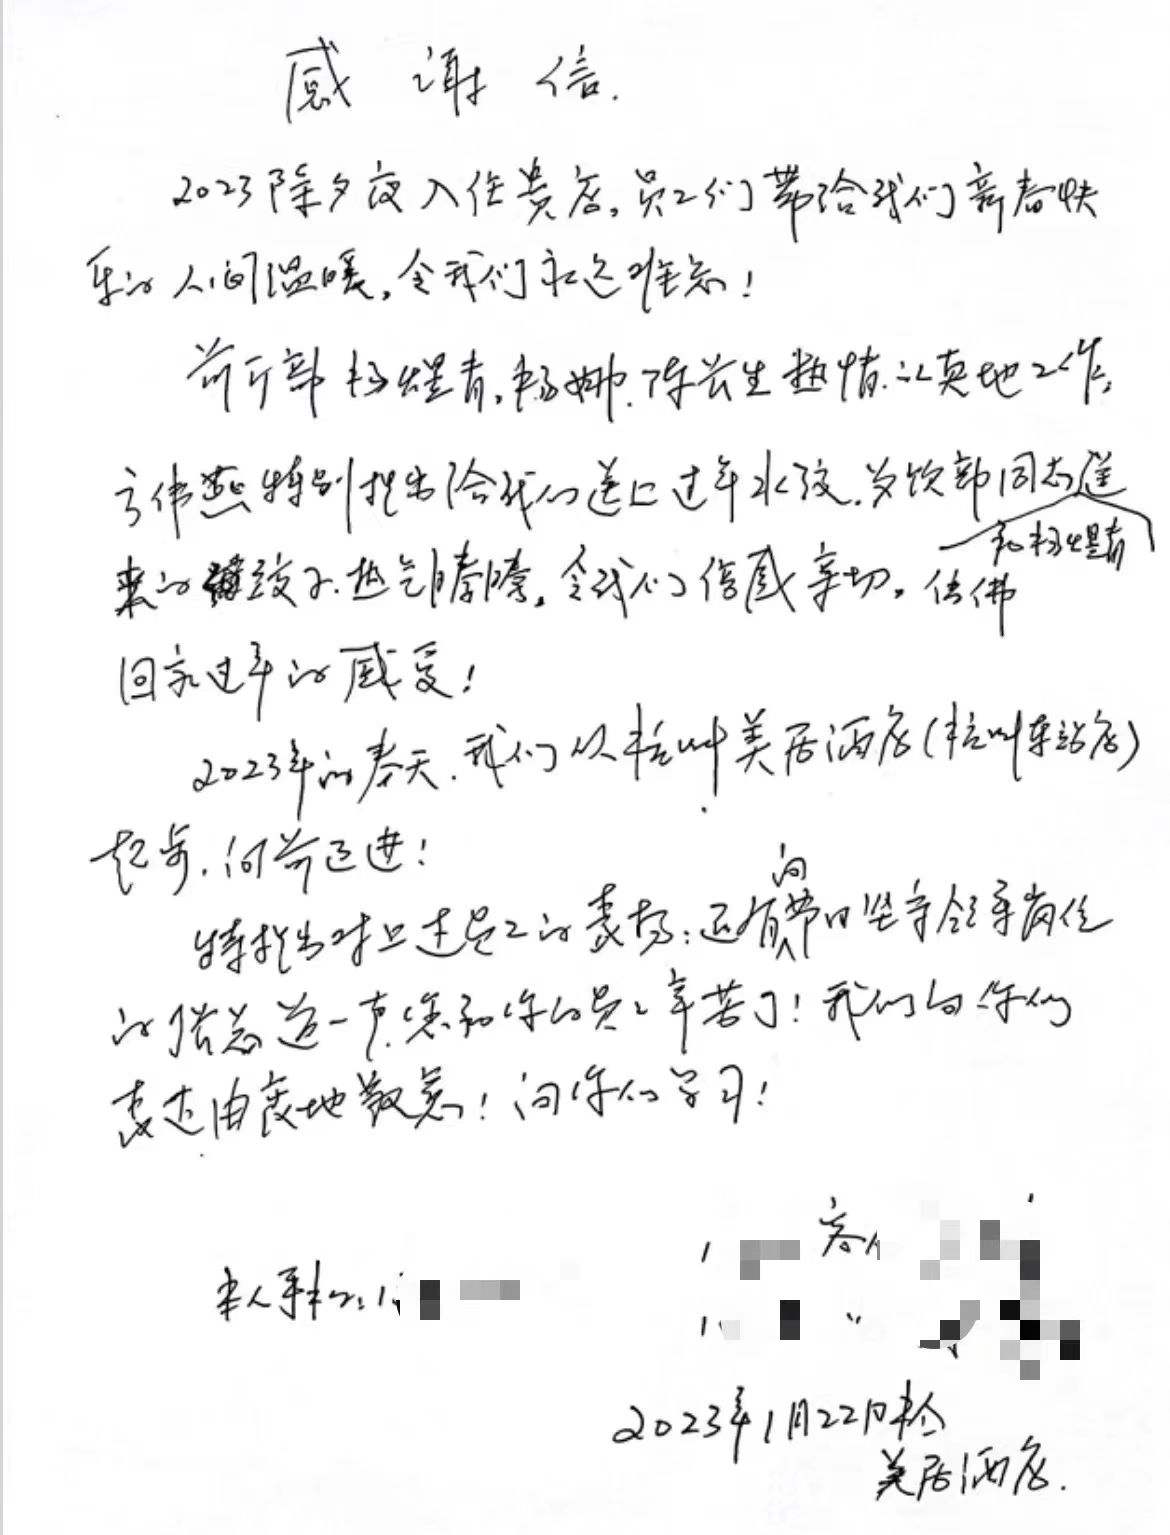 感谢信.
2023除夕夜入住贵店,员工们带给我们新春快
乐的人间温暖,令我们永远难忘!
前厅部杨煜青,杨娜、陈长生热情、认真地工作,
方伟燕特别提出给我们送上过年水饺,为饮部同志送
和杨煜青
来的饺子、热气腾腾,令我们倍感亲切,仿佛
回家过年的感受!
2023年的春天,我们从杭州美居酒店(杭州车站店)
起步,向前迈进!
向
特提出对上述员工的表扬:还有节日坚守领导岗位
的 总道一声,您和你的员工辛苦了!我们向你们
表达由衷地敬意!向你们学习!
客人
本人手机:1
〃
2023年1月22日于
美居酒店.